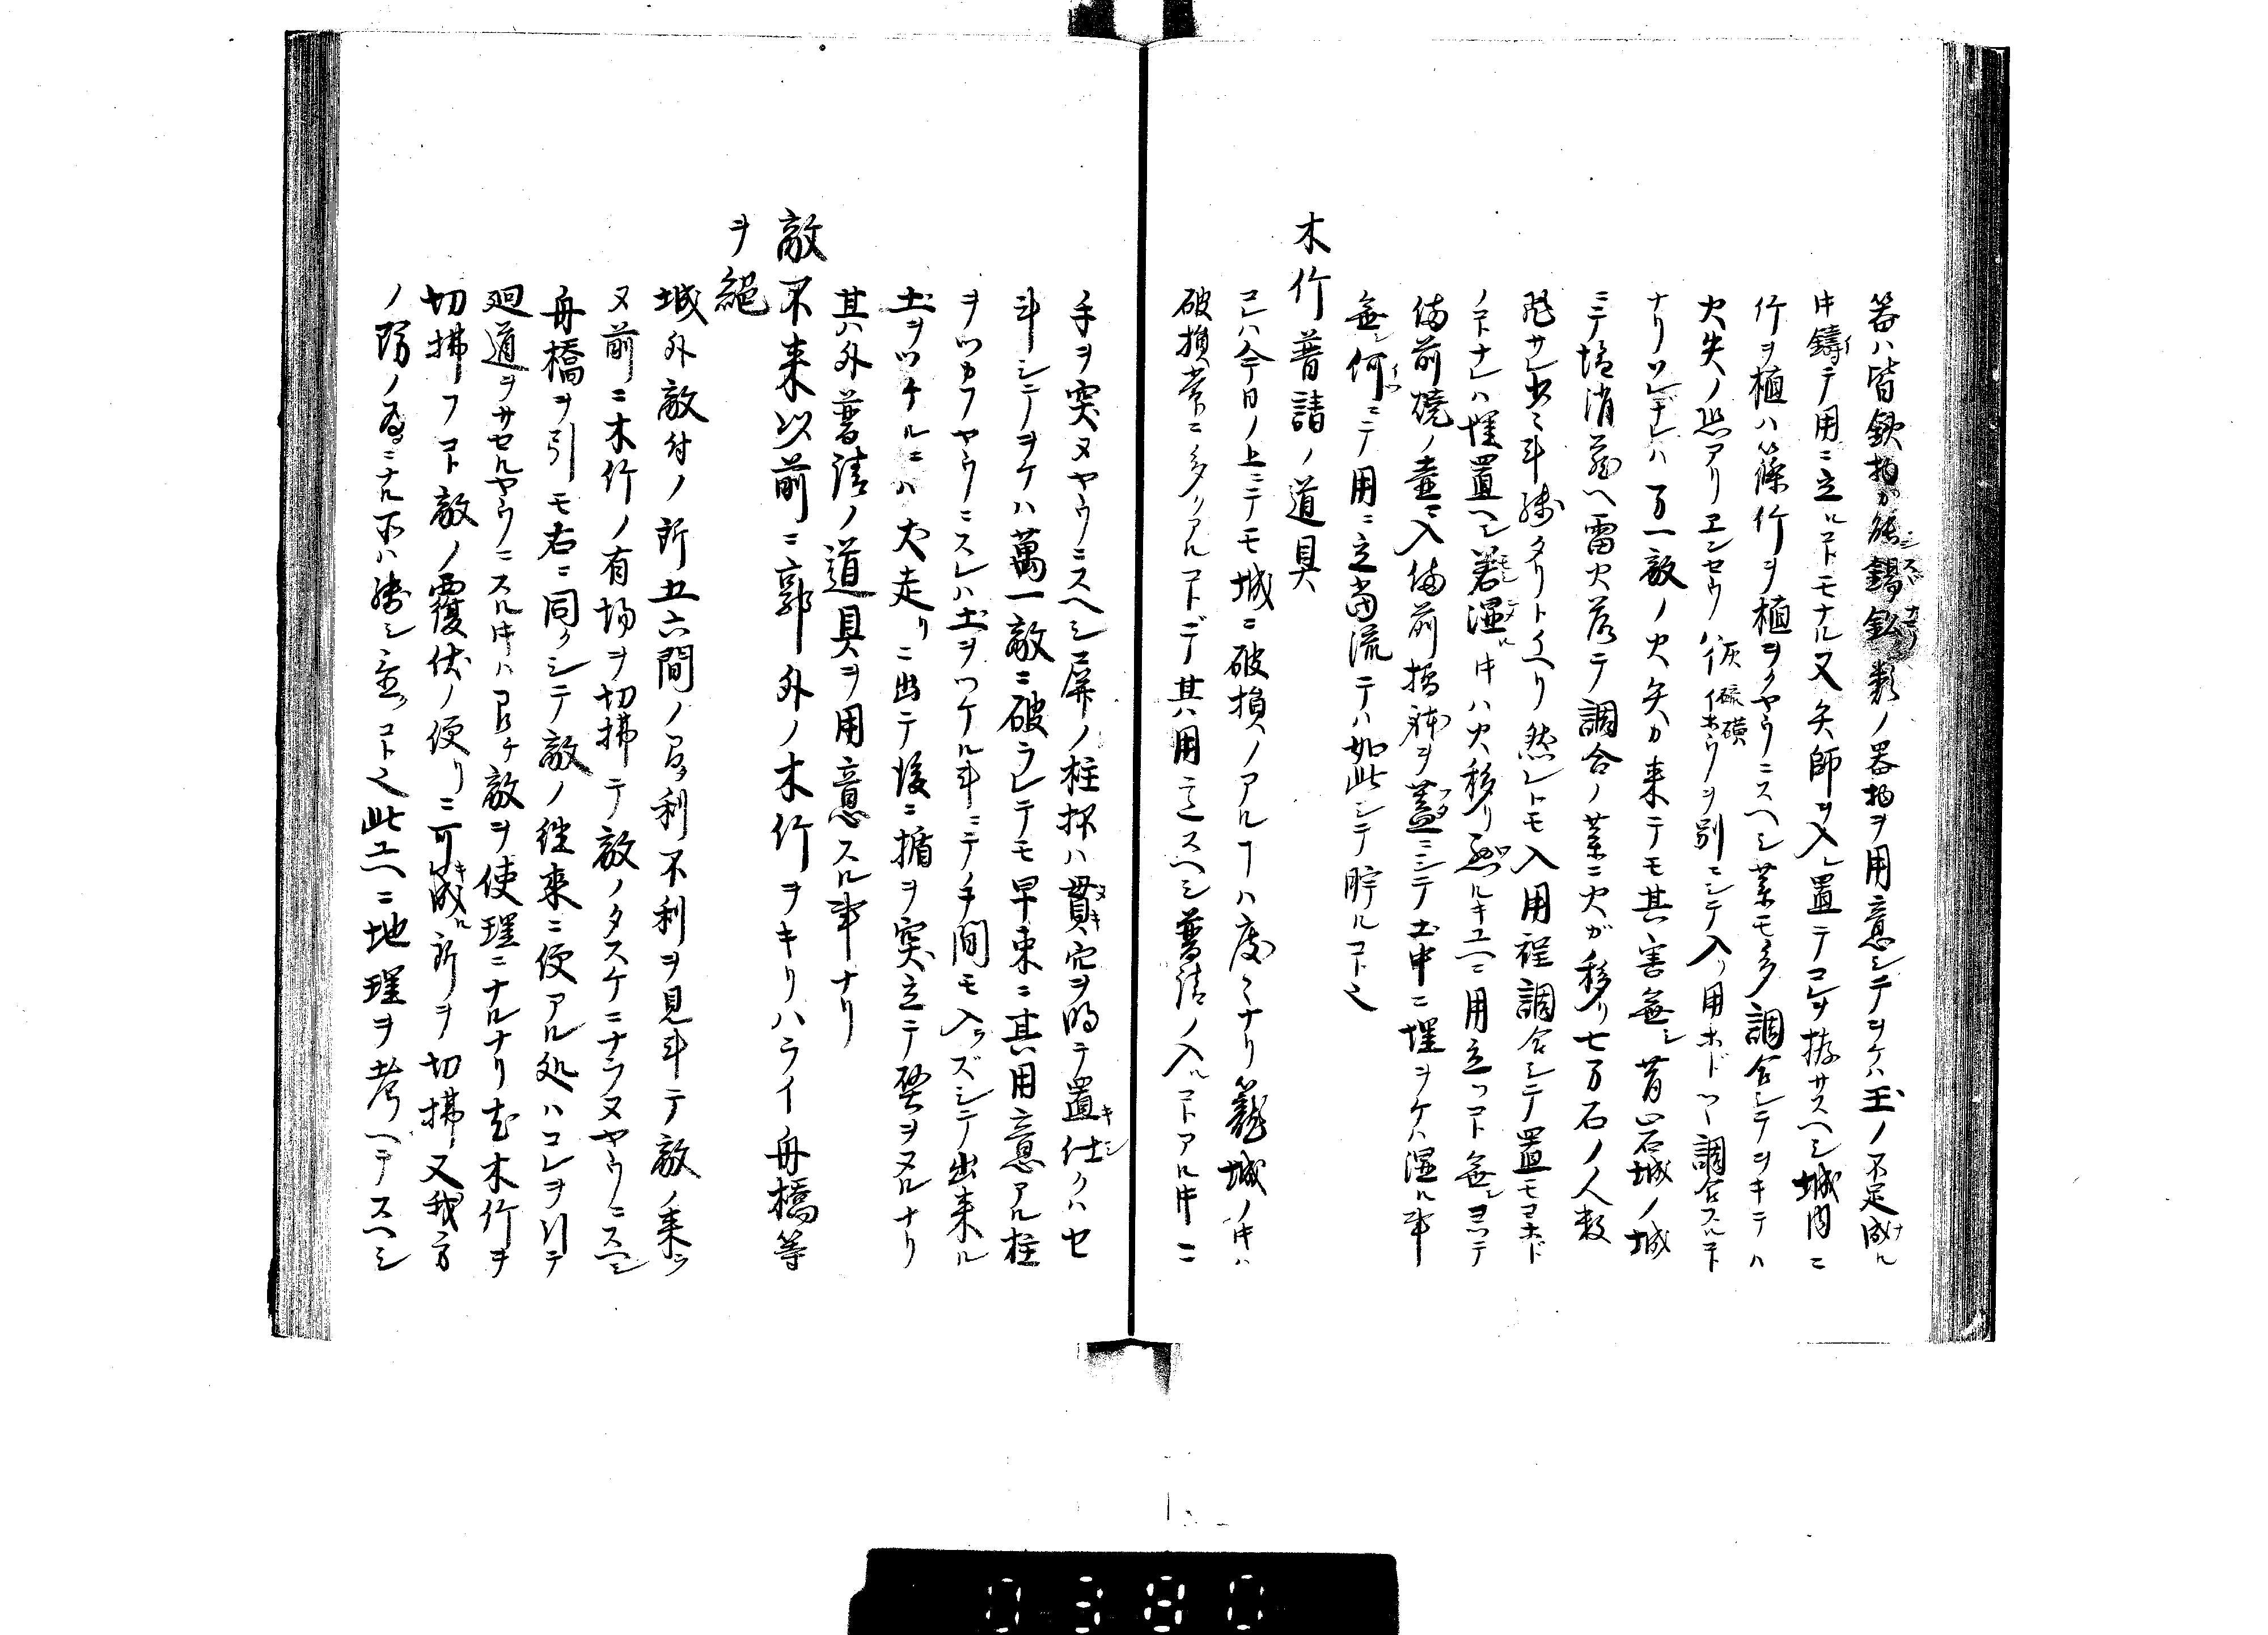 器ハ皆鉄物カ能錫鉛類ノ器物ヲ用意シテヲケハ玉ノ不足成ル
時鋳テ用ニ立ルコトモナル又矢師ヲ入レ置テコレヲ拵サスヘシ城内ニ
竹ヲ植ハ篠竹ヲ植ヲクヤウニスヘシ薬モ多調合シテヲキテハ
火失ノ恐アリエンセウハイ灰イホウ硫磺ヲ別ニシテ入リ用ホドツヽ調合スルコト
ナリソレナレハ万一敵ノ火矢カ来テモ其害無シ昔岩城ノ城
ニテ塩消蔵ヘ雷火落テ調合ノ薬ニ火ガ移リ七万石ノ人数
飛サレ出ミ斗タリトイヘリ然レトモ入用程調合シテ置モヨホド
ノコトナレハ埋置ヘシ若湿ル時ハ火移リ悪ルキユヘニ用立ツコト無シヨツテ
備前焼ノ壷ニ入備前擂鉢ヲ蓋ニシテ土中ニ埋ヲケハ湿ル事
無シ何ニテ用ニ立当流テハ如此シテ貯ルコト也
木竹普請ノ道具
コレハ今日ノ上ニテモ城ニ破損ノアル丁ハ度々ナリ籠城ノ時ハ
破損常ニ多クアルコトデ其ハ用意スヘシ普請ノ入ルコトアル時ニ
手ヲ突ヌヤウニスヘシ屏ノ柱抔ハ貫穴ヲ明テ置仕クハセ
斗シテヲケハ萬一敵ニ破ラレテモ早束ニ其用意アル柱
ヲツカフヤウニスレハ土ヲツケル斗ニテ手間モ入ラズシテ出来ル
土ヲツケルニハ犬走リニ出テ後ニ楯ヲ突立テ壁ヲヌルナリ
其ハ外普請ノ道具ヲ用意スル事ナリ
敵不来以前ニ郭外ノ木竹ヲキリハライ舟橋等
ヲ絶
城外敵付ノ所五六間ノ間利不利ヲ見斗テ敵ノ乗ラ
ヌ前ニ木竹ノ有場ヲ切拂テ敵ノタスケニナラヌヤウニスヘシ
舟橋ヲ引モ右ニ同クシテ敵ノ往来ニ便アル処ハコレヲ引テ
廻道ヲサセルヤウニスル時ハ即チ敵ヲ使理ニナルナリ尤木竹ヲ
切拂フコト敵ノ覆伏ノ便リニ可成ル所ヲ切拂又我方
ノ防ノ為ニナル所ハ残シ立ツコト也此ユヘニ地理ヲ考ヘテスヘシ
0380